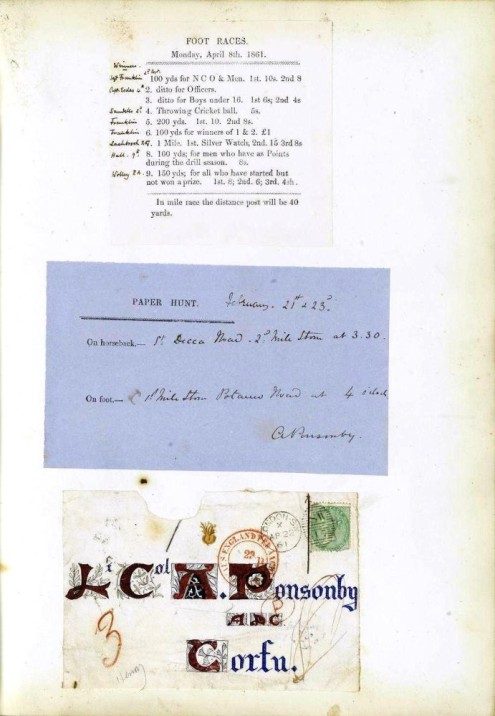 FOOT RACES.
Monday, April 8th. 1861.
Winner.
Franklin 100 yds for N C O & Men. 1st. 10s. 2nd 8
2. ditto for Officers.
3. ditto for Boys under 16. 1st 6s; 2nd 4s
4. Throwing Cricket ball. 5s.
Franklin 5. 200 yds. 1st. 10. 2nd 8s.
Franklin 6. 100 yds for winners of 1 & 2. £1
7. 1 Mile. 1st. Silver Watch, 2nd. 15 3rd 8s
Hall. 8. 100 yds; for men who have as Points
during the drill season. 6s.
Volley 9. 150 yds; for all who have started but
not won a prize. 1st. 6; 2nd. 6; 3rd. 4sh.
In mile race the distance post will be 40
yards.
PAPER HUNT. February. 21st & 23d.
On horseback.— St. Decca Road - 2d Mile Stone at 3.30.
On foot.— 1st Mile Stone Potamo Road at 4 o'clock
A Ponsonby.
LONDON
AP 2
61
Lt Col A. Ponsonby
ADC
3
Corfu.